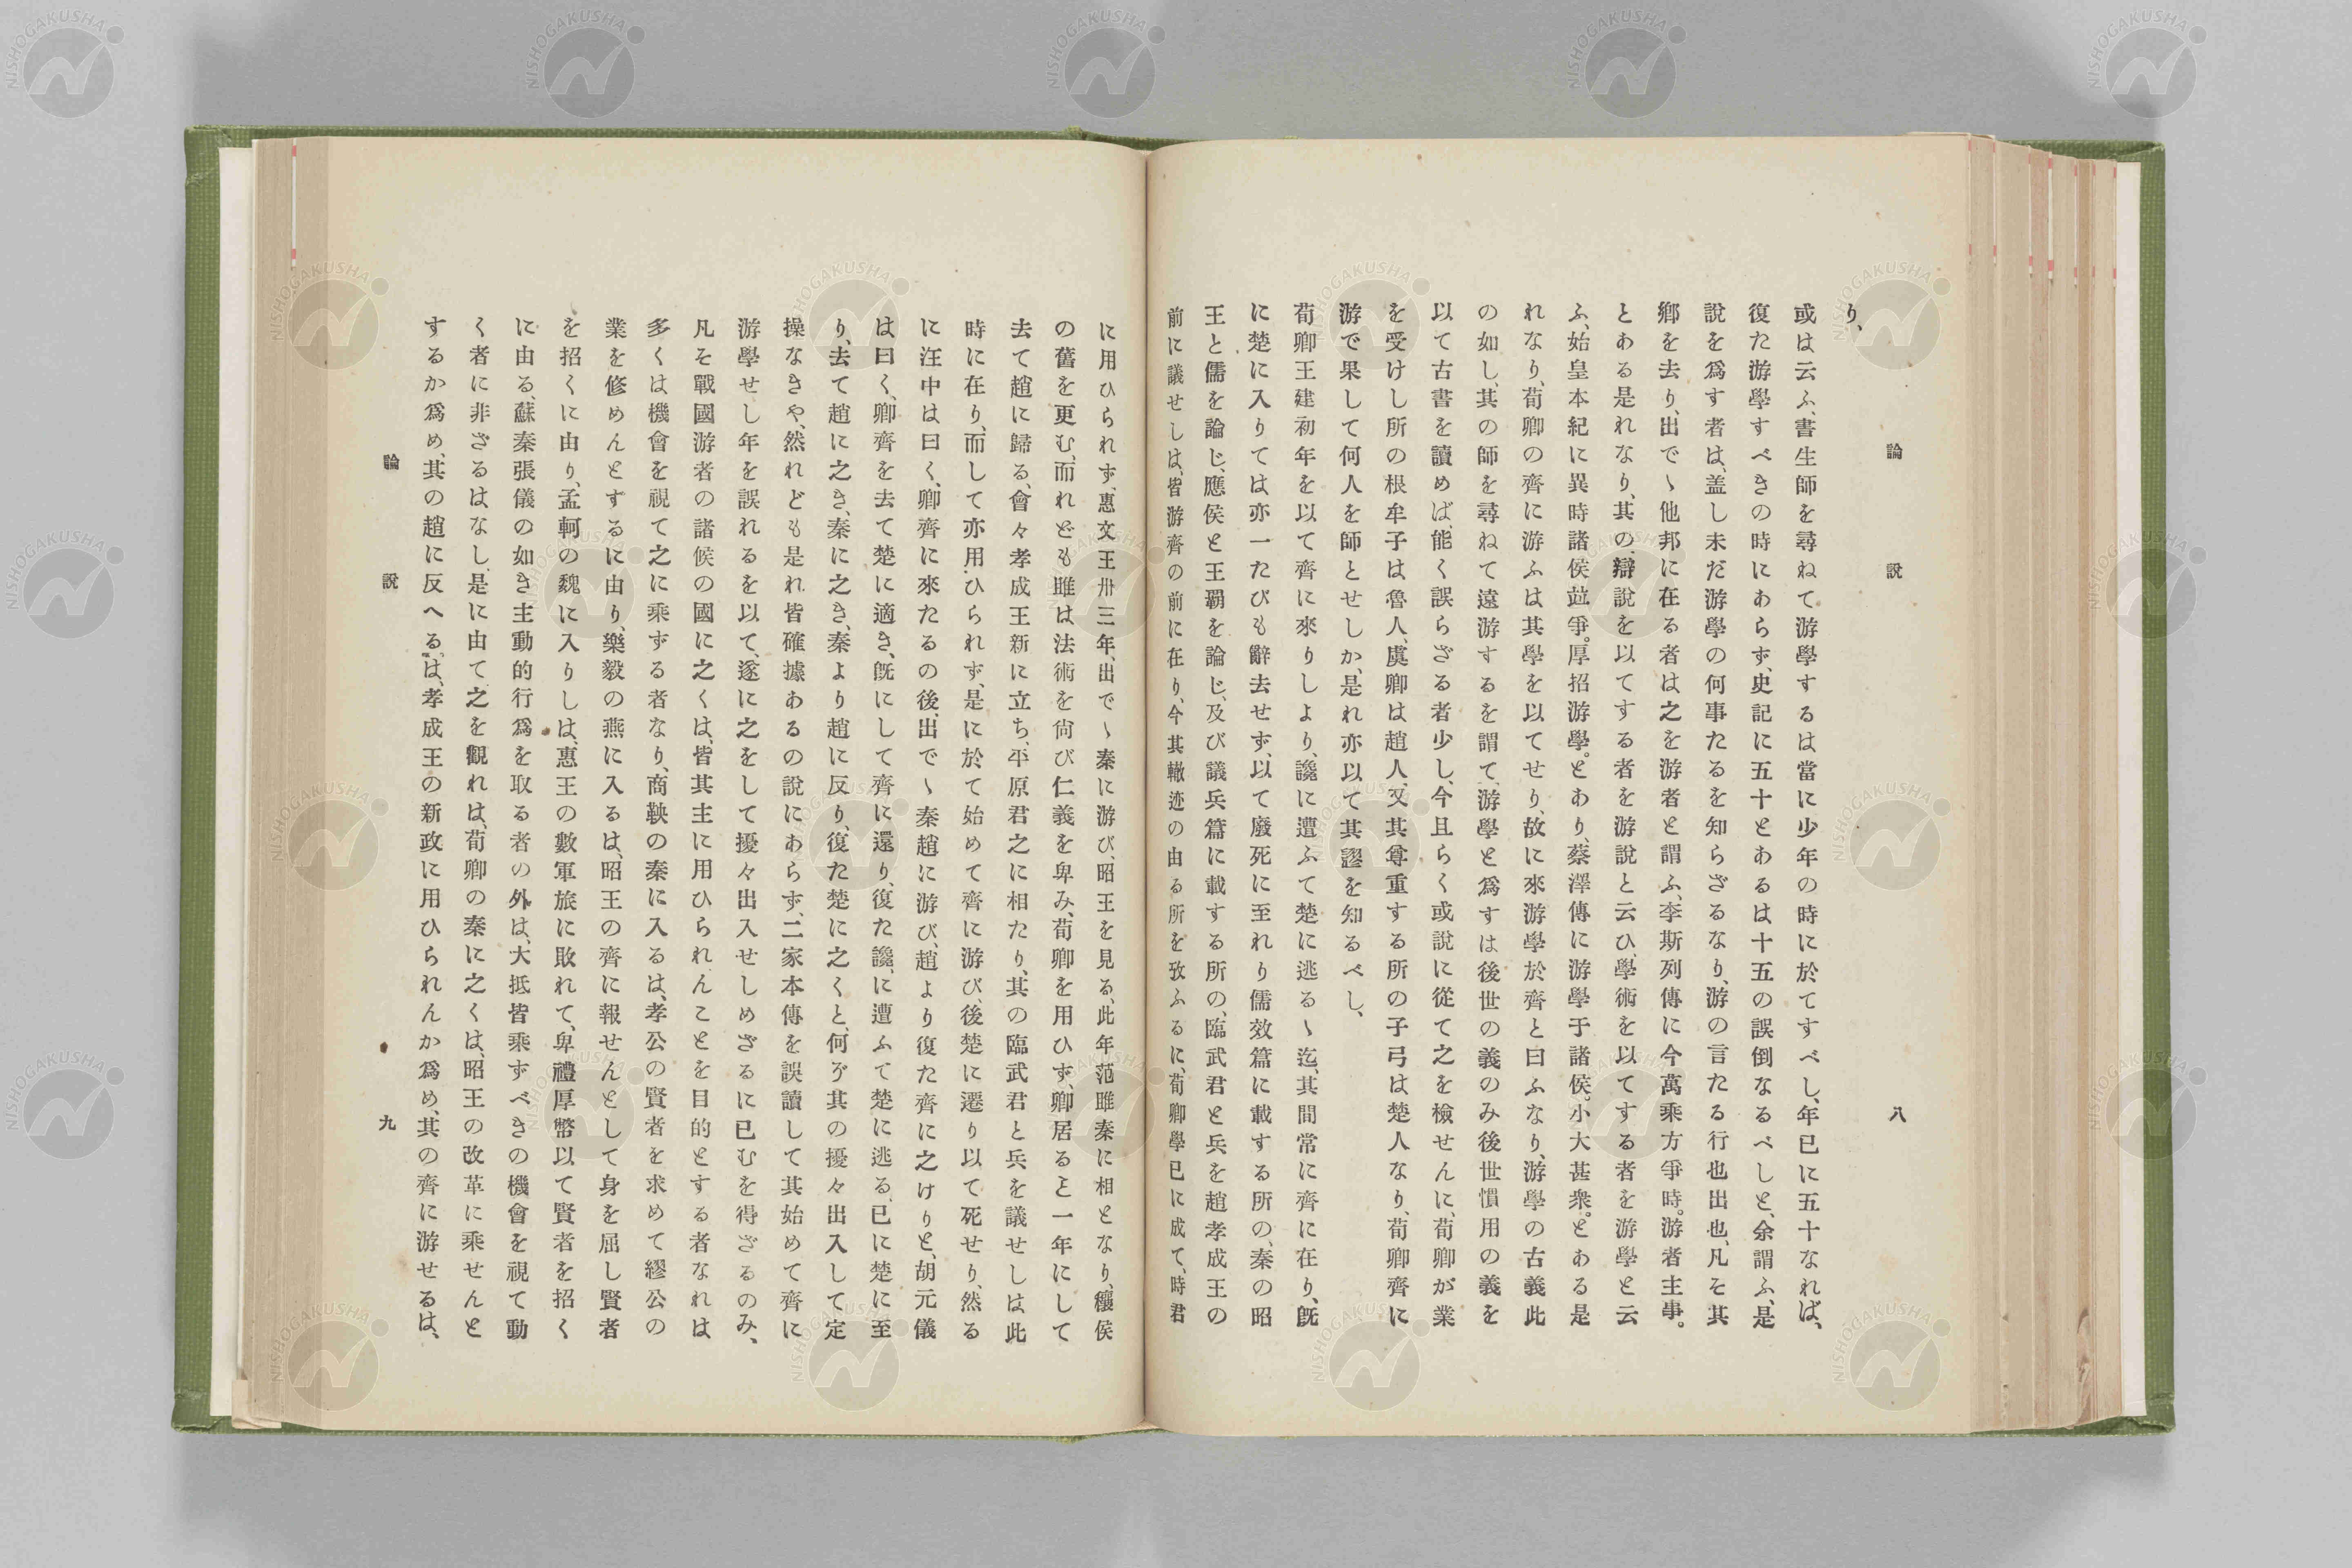 論說 八
り、
或は云ふ、書生師を尋ねて游學するは當に少年の時に於てすべし、年已に五十なれば、
復た游學すべきの時にあらず、史記に五十とあるは十五の誤倒なるべしと、余謂ふ、是
說を爲す者は、盖し未だ游學の何事たるを知らざるなり、游の言たる行也出也、凡そ其
鄕を去り、出で〻他邦に在る者は之を游者と謂ふ、李斯列傳に今萬乘方爭時。游者主事。
とある是れなり、其の、辯說を以てする者を游說と云ひ、學術を以てする者を游學と云
ふ、始皇本紀に異時諸侯竝爭。厚招游學。とあり、蔡澤傳に游學于諸侯。小大甚衆。とある是
れなり、荀卿の齊に游ふは其學を以てせり、故に來游學於齊と曰ふなり、游學の古義此
の如し、其の師を尋ねて遠游するを謂て、游學と爲すは後世の義のみ後世慣用の義を
以て古書を讀めば、能く誤らざる者少し、今且らく或說に從て之を檢せんに、荀卿が業
を受けし所の根牟子は魯人、虞卿は趙人、又其尊重する所の子弓は楚人なり、荀卿齊に
游で果して何人を師とせしか、是れ亦以て其謬を知るべし、
荀卿王建初年を以て齊に來りしより、讒に遭ふて楚に逃る〻迄、其間常に齊に在り、旣
に楚に入りては亦一たびも辭去せず、以て廢死に至れり儒效篇に載する所の、秦の昭
王と儒を論じ、應侯と王覇を論じ、及び議兵篇に載する所の、臨武君と兵を趙孝成王の
前に議せしは、皆游齊の前に在り、今其轍迹の由る所を攷ふるに、荀卿學已に成て、時君
に用ひられず、惠文王卅三年、出で〻秦に游び、昭王を見る、此年范雎秦に相となり、穰侯
の舊を更む、而れども雎は法術を尙び仁義を卑み、荀卿を用ひず、卿居ると一年にして
去て趙に歸る、會々孝成王新に立ち、平原君之に相たり、其の臨武君と兵を議せしは此
時に在り、而して亦用ひられず、是に於て始めて齊に游び、後楚に遷り以て死せり、然る
に汪中は曰く、卿齊に來たるの後、出で〻秦趙に游び、趙より復た齊に之けりと、胡元儀
は曰く、卿齊を去て楚に適き、旣にして齊に還り、復た讒に遭ふて楚に逃る、已に楚に至
り、去て趙に之き、秦に之き、秦より趙に反り、復た楚に之くと、何ぞ其の擾々出入して定
操なきや、然れども是れ皆確據あるの說にあらず、二家本傳を誤讀して其始めて齊に
游學せし年を誤れるを以て、遂に之をして擾々出入せしめざるに已むを得ざるのみ、
凡そ戰國游者の諸侯の國に之くは、皆其主に用ひられんことを目的とする者なれは
多くは機會を視て之に乘ずる者なり、商鞅の秦に入るは、孝公の賢者を求めて繆公の
業を修めんとするに由り、樂毅の燕に入るは、昭王の齊に報せんとして身を屈し賢者
を招くに由り、孟軻の魏に入りしは、惠王の數軍旅に敗れて、卑禮厚幣以て賢者を招く
に由る、蘇秦張儀の如き主動的行爲を取る者の外は、大抵皆乘ずべきの機會を視て動
く者に非ざるはなし、是に由て之を觀れは、荀卿の秦に之くは、昭王の改革に乘せんと
するか爲め、其の趙に反へる、は、孝成王の新政に用ひられんか爲め、其の齊に游せるは、
論說 九